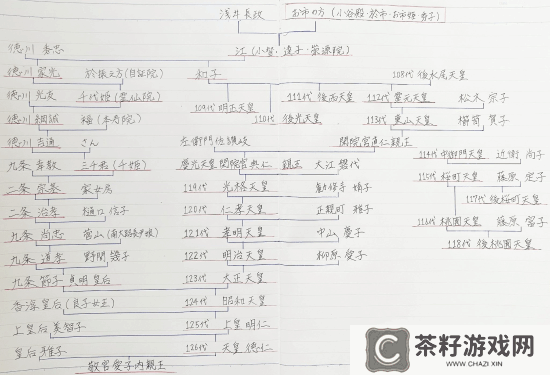 浅井長政 お市の方(小谷殿・於市・お市姫・秀子)
江(小督・達子・崇源院)
徳川 秀忠
徳川 家光 於振之方(自証院) 和子 108代 後水尾天皇
徳川 光友 千代姫(霊仙院) 111代 後西天皇 112代 霊元天皇 松木 宗子
109代 明正天皇 110代 後光天皇 113代 東山天皇 櫛笥 賀子
徳川 綱誠 福(本寿院)
徳川 吉通 さん 左衛門佐讃岐 閑院宮直仁親王 114代 中御門天皇 近衛 尚子
九条 幸教 三千君(千姫) 慶光天皇 閑院宮典仁 親王 大江 磐代 115代 桜町天皇 藤原 定子
二条 宗基 119代 光格天皇 勧修寺 婧子 117代 後桜町天皇
二条 治孝 樋口 信子 120代 仁孝天皇 正親町 雅子 116代 桃園天皇 藤原 富子
九条 尚忠 菅山 121代 孝明天皇 中山 慶子 118代 後桃園天皇
九条 道孝 野間 幾子 122代 明治天皇 柳原 愛子
九条 節子 貞明 皇后 123代 大正天皇
香淳皇后(良子女王) 124代 昭和天皇
上皇后 美智子 125代 上皇 明仁
皇后 雅子 126代 天皇 徳仁
敬宮愛子内親王
茶籽游戏网
WWW.CHAZI.XIN